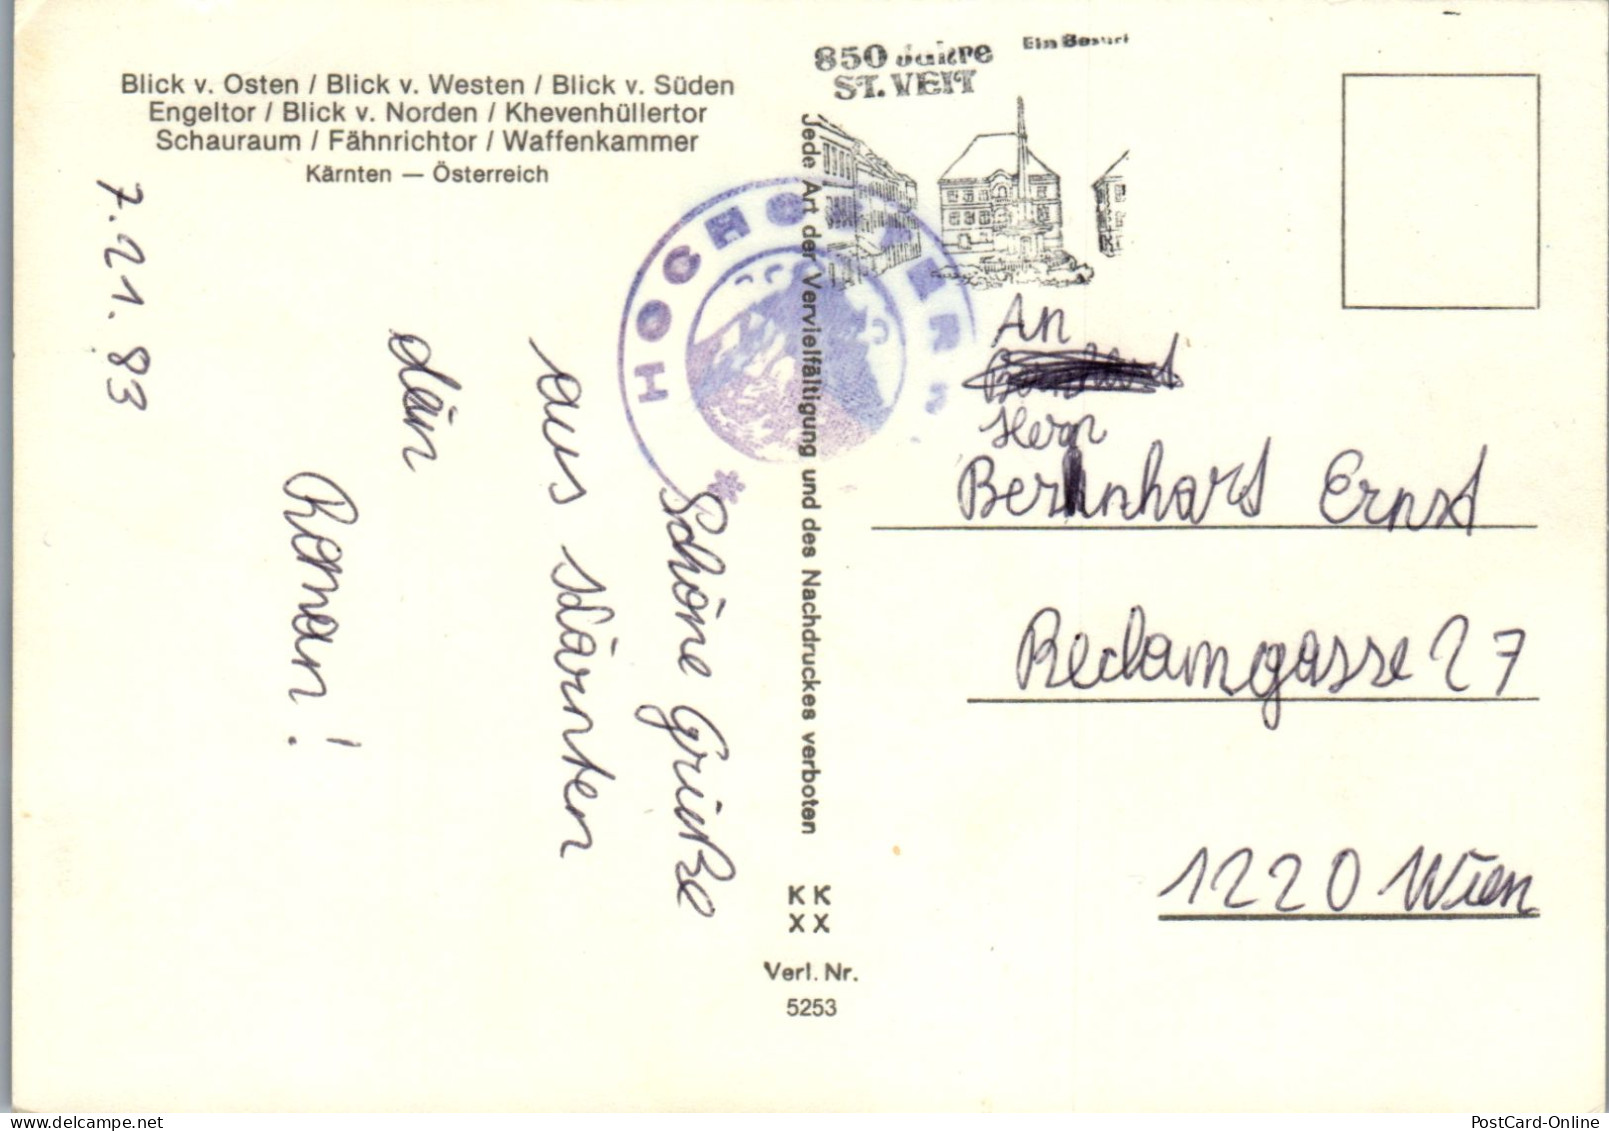 Blick v. Osten / Blick v. Westen / Blick v. Süden
Engeltor / Blick v. Norden / Khevenhüllertor
Schauraum / Fähnrichtor / Waffenkammer
Kärnten — Österreich
7. 21. 83
Schöne Grüße
aus Kärnten
dein
Roman!
850 Jahre
ST. VEIT
Ein Besuch
HOCHOSTER
Jede Art der Vervielfältigung und des Nachdruckes verboten
KK
XX
Verl. Nr.
5253
An
Herrn
Bernhart Ernst
Reclamgasse 27
1220 Wien
PostCard-Online